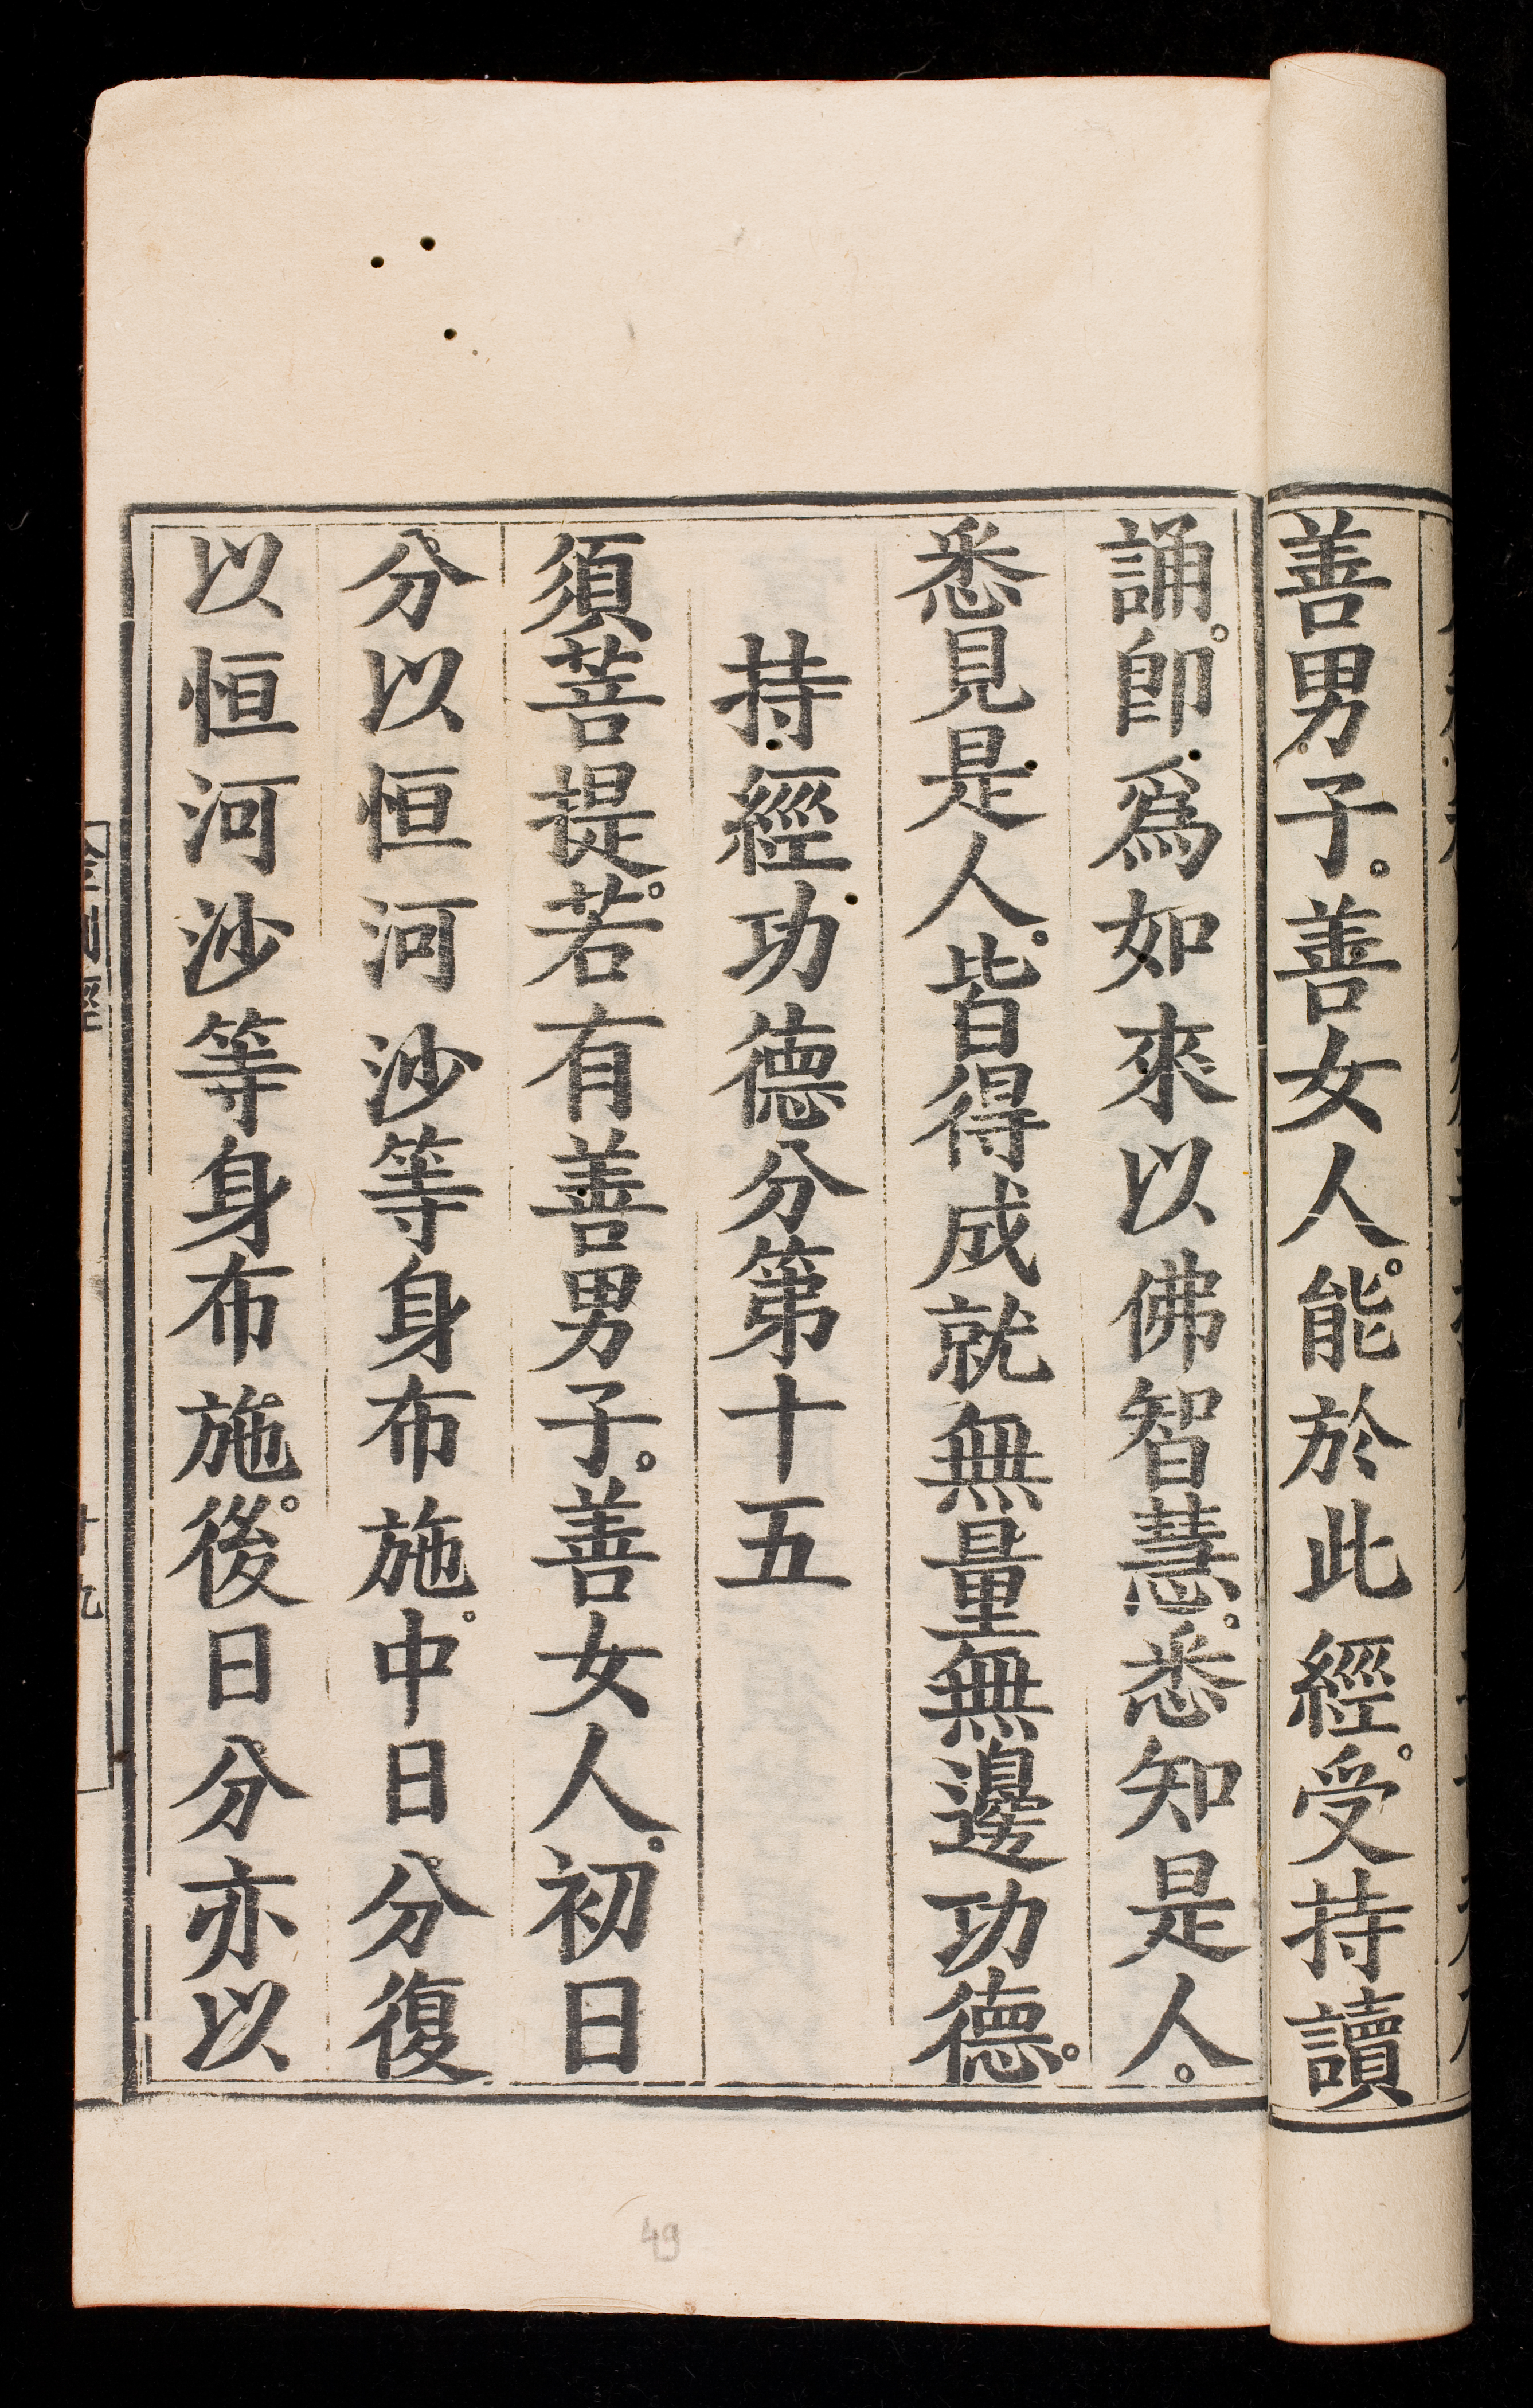 善男子。善女人。能於此經。受持讀
誦。卽爲如來以佛智慧。悉知是人。
悉見是人。皆得成就無量無邊功德。
持經功德分第十五
須菩提。若有善男子。善女人。初日
分以恒河沙等身布施。中日分復
以恒河沙等身布施。後日分亦以
十九
49